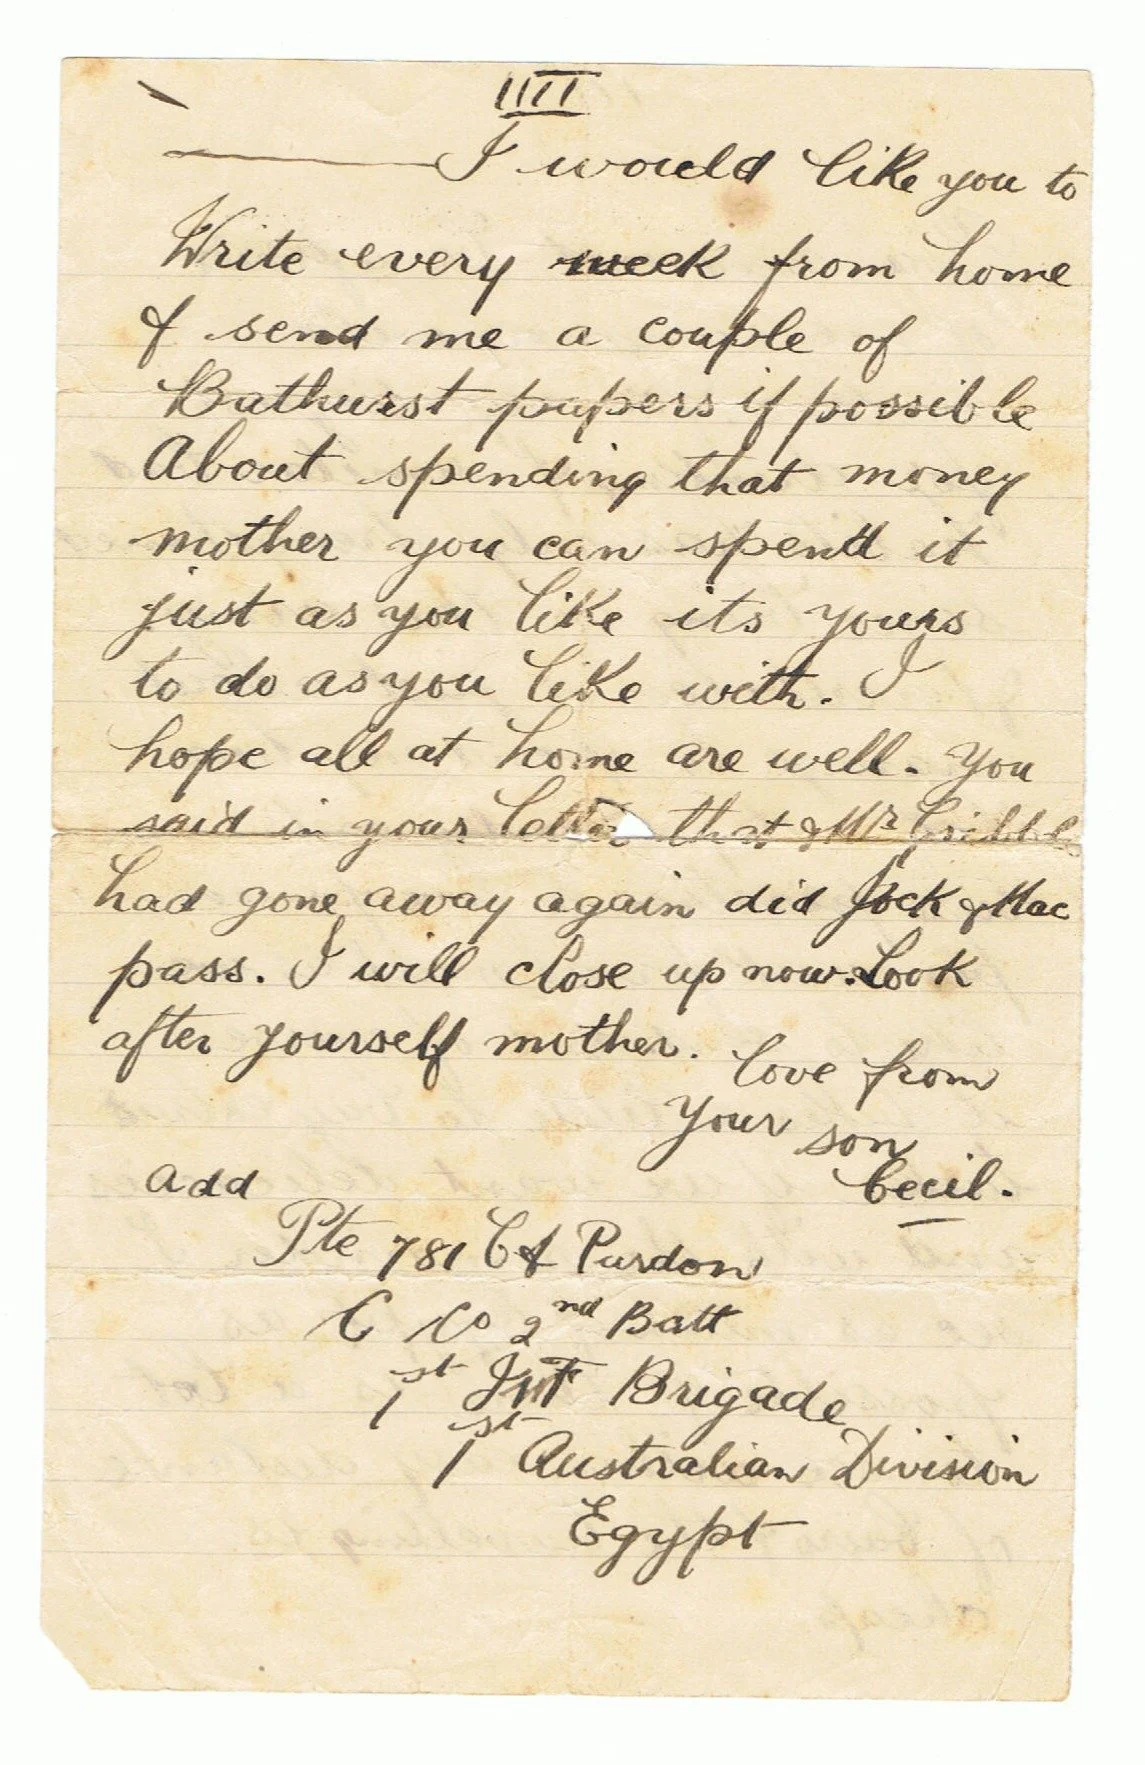 IIII
I would like you to
Write every week from home
& send me a couple of
Bathurst papers if possible
About spending that money
mother you can spend it
just as you like its yours
to do as you like with. I
hope all at home are well. You
said in your letter that Mr
had gone away again did Jock & Mac
pass. I will close up now. Look
after yourself mother.
love from
Your son
Cecil.
add
Pte 781 Purdon
C Co 2nd Batt
1st Inf Brigade
1st Australian Division
Egypt